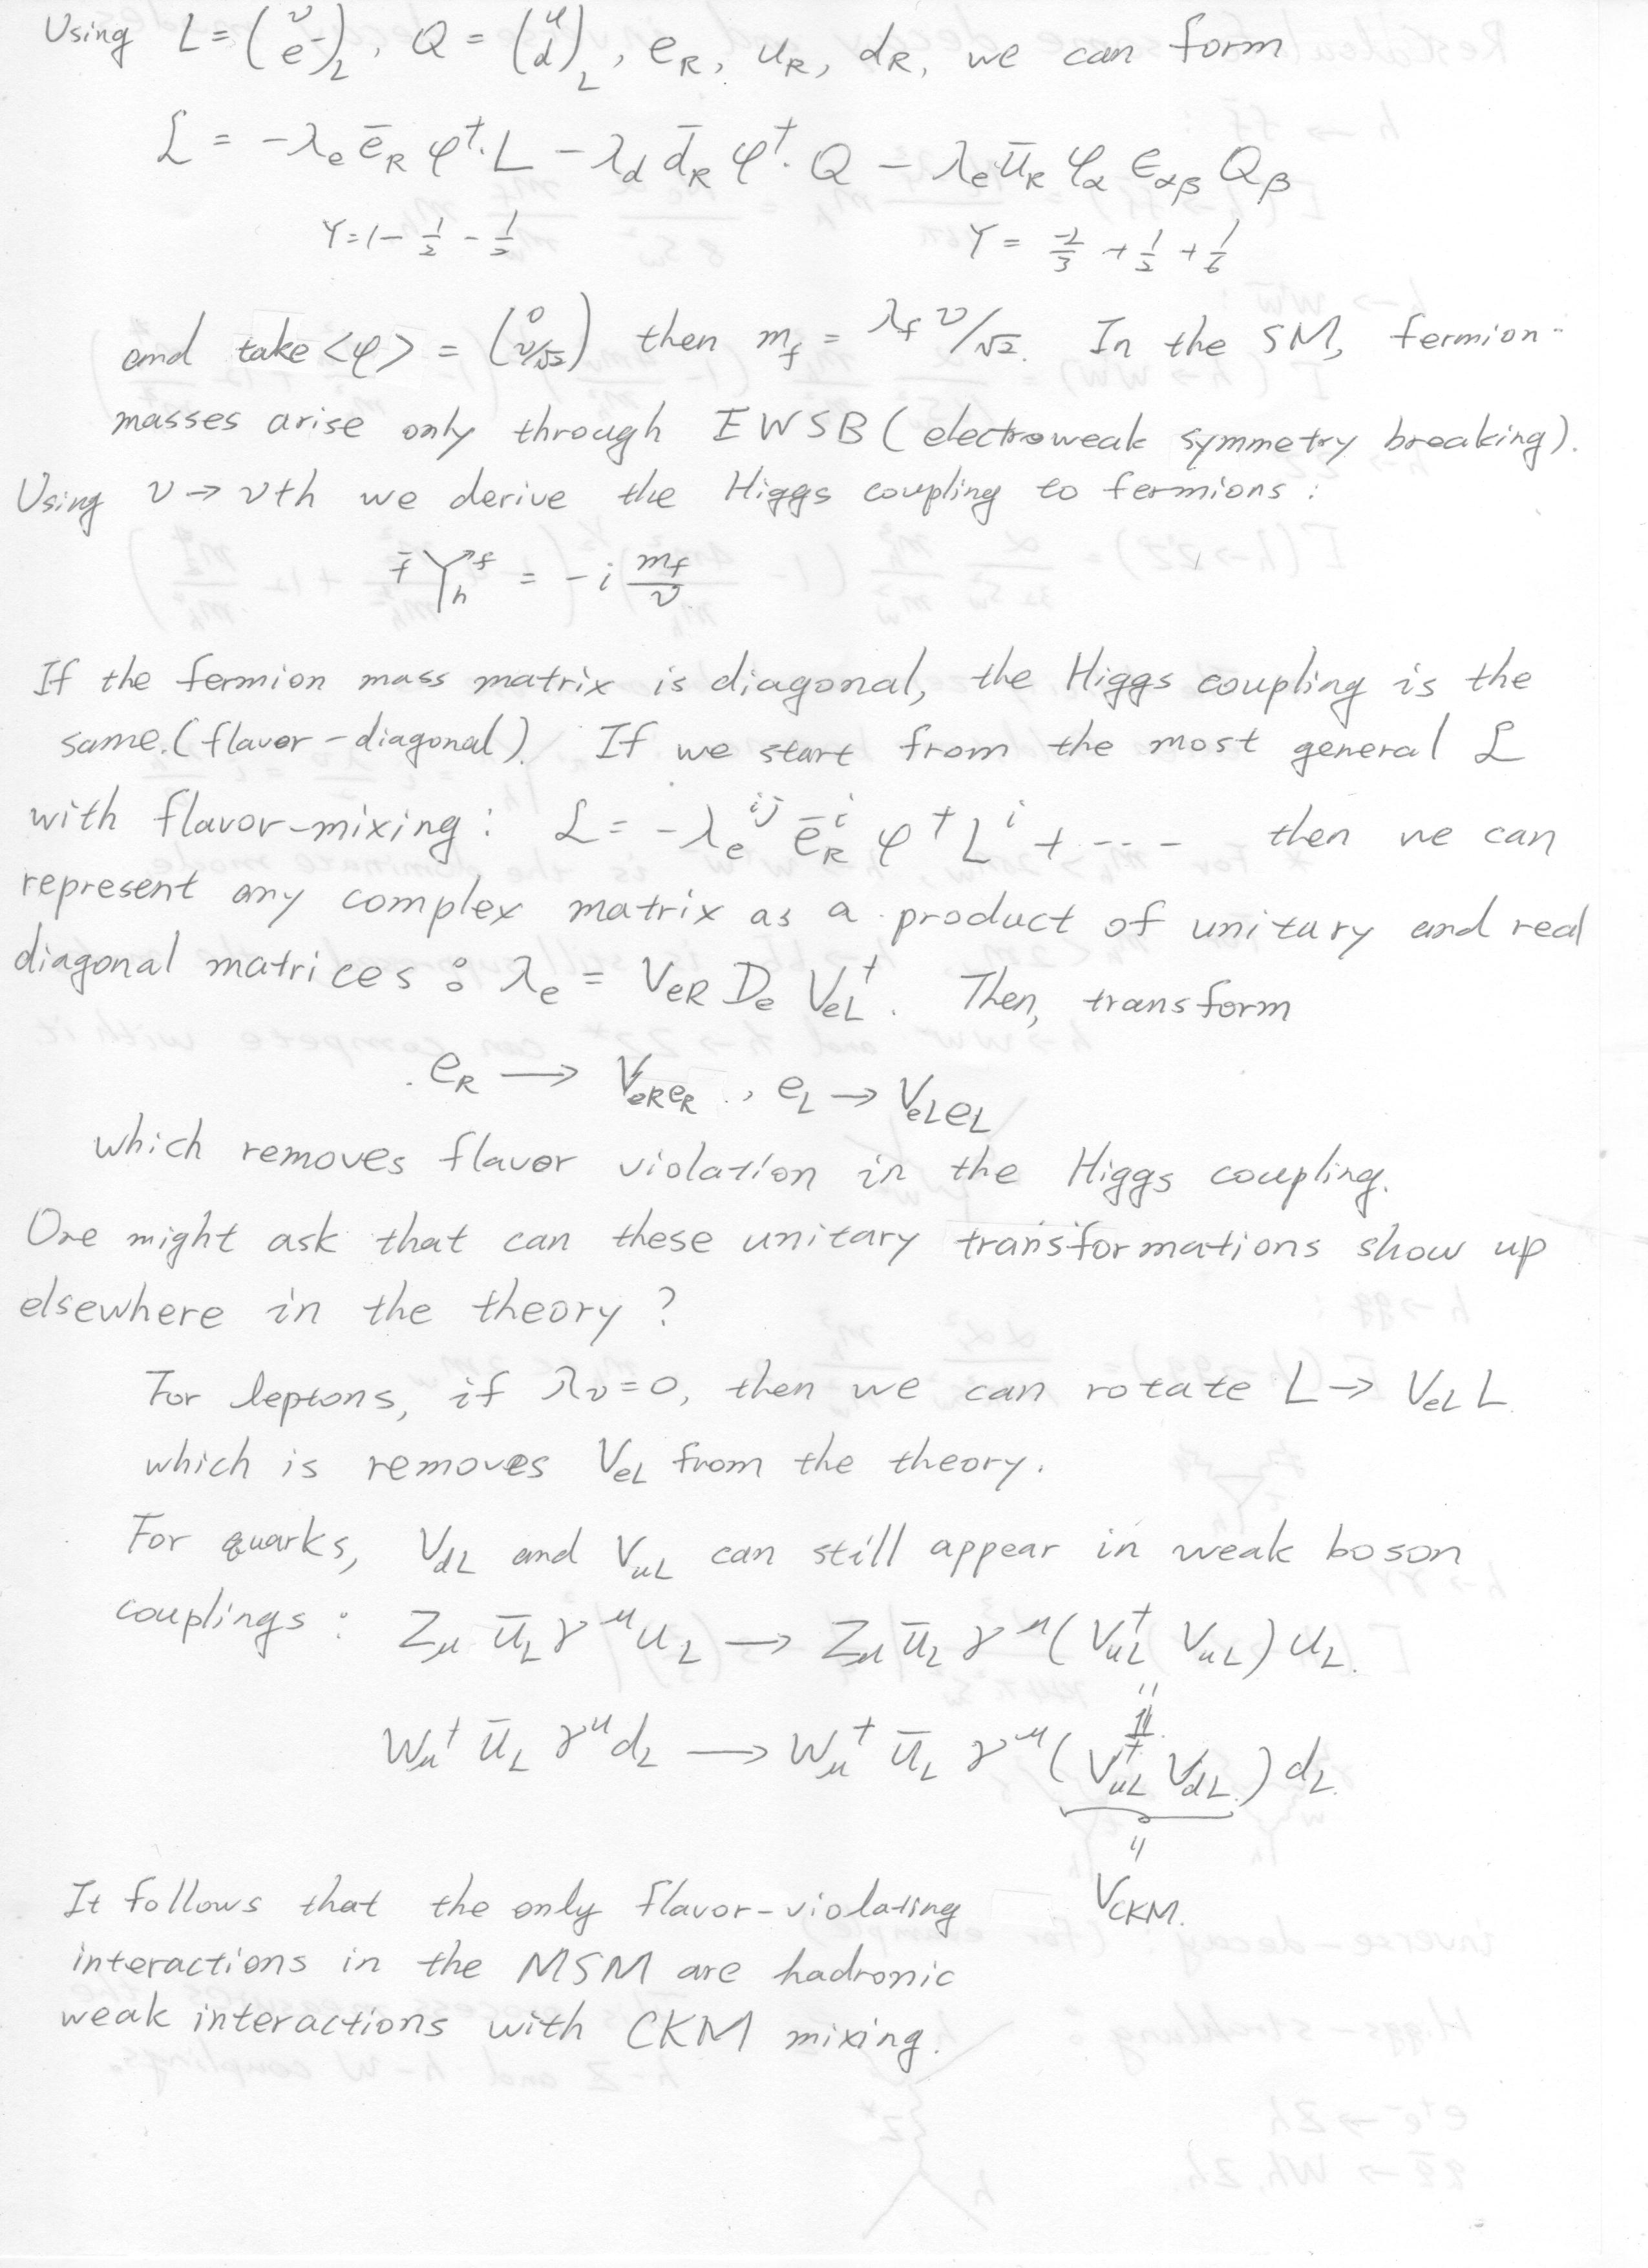 Using L = (ν e⁻)_L, Q = (u d)_L, e_R, u_R, d_R, we can form
ℒ = -λ_e ē_R φ†·L - λ_d d̄_R φ†·Q - λ_e ū_R φ_α ϵ_αβ Q_β
Y=1- 1/2 - 1/2 Y = -2/3 + 1/2 + 1/6
and take <φ> = (0 v/√2) then m_f = λ_f v/√2. In the SM, fermion-
masses arise only through EWSB (electroweak symmetry breaking).
Using v → v+h we derive the Higgs coupling to fermions :
f̄ f h = -i m_f/v
If the fermion mass matrix is diagonal, the Higgs coupling is the
same. (flavor-diagonal). If we start from the most general ℒ
with flavor-mixing : ℒ = -λ_e^ij ē_R^i φ† L^i + ---- then we can
represent any complex matrix as a product of unitary and real
diagonal matrices : λ_e = V_eR D_e V_eL†. Then, transform
e_R → V_eR e_R , e_L → V_eL e_L
which removes flavor violation in the Higgs coupling.
One might ask that can these unitary transformations show up
elsewhere in the theory ?
For leptons, if λ_ν=0, then we can rotate L → V_eL L
which is removes V_eL from the theory.
For quarks, V_dL and V_uL can still appear in weak boson
couplings : Z_μ ū_L γ^μ u_L → Z_μ ū_L γ^μ (V_uL† V_uL) u_L.
"
1.
W_μ† ū_L γ^μ d_L → W_μ† ū_L γ^μ (V_uL† V_dL) d_L.
"
V_CKM.
It follows that the only flavor-violating
interactions in the MSM are hadronic
weak interactions with CKM mixing.